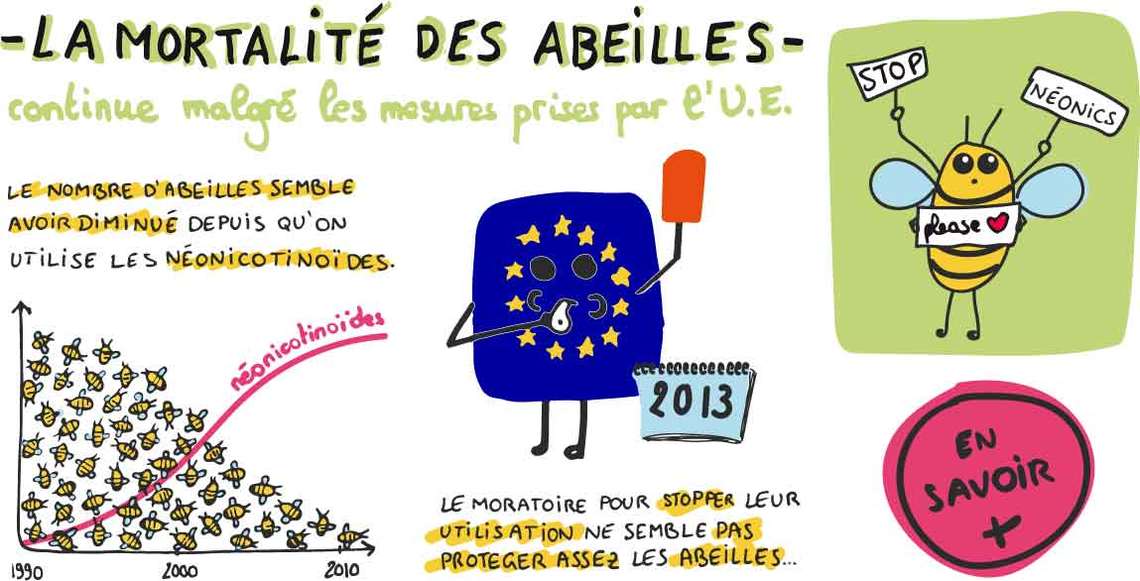 -LA MORTALITÉ DES ABEILLES-
continue malgré les mesures prises par l'U.E.
LE NOMBRE D'ABEILLES SEMBLE
AVOIR DIMINUÉ DEPUIS QU'ON
UTILISE LES NÉONICOTINOÏDES.
néonicotinoïdes
1990 2000 2010
2013
LE MORATOIRE POUR STOPPER LEUR
UTILISATION NE SEMBLE PAS
PROTEGER ASSEZ LES ABEILLES...
STOP
NÉONICS
please
EN
SAVOIR
+